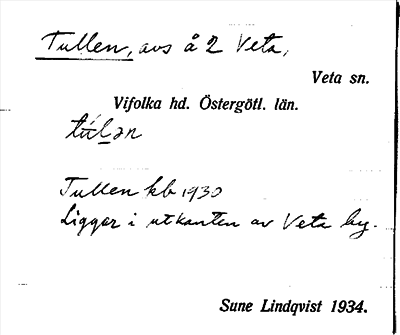 Tullen, avs å 2 Veta,
Veta sn.
Vifolka hd. Östergötl. län.
túlən
Tullen kb 1930
Ligger i utkanten av Veta by.
Sune Lindqvist 1934.